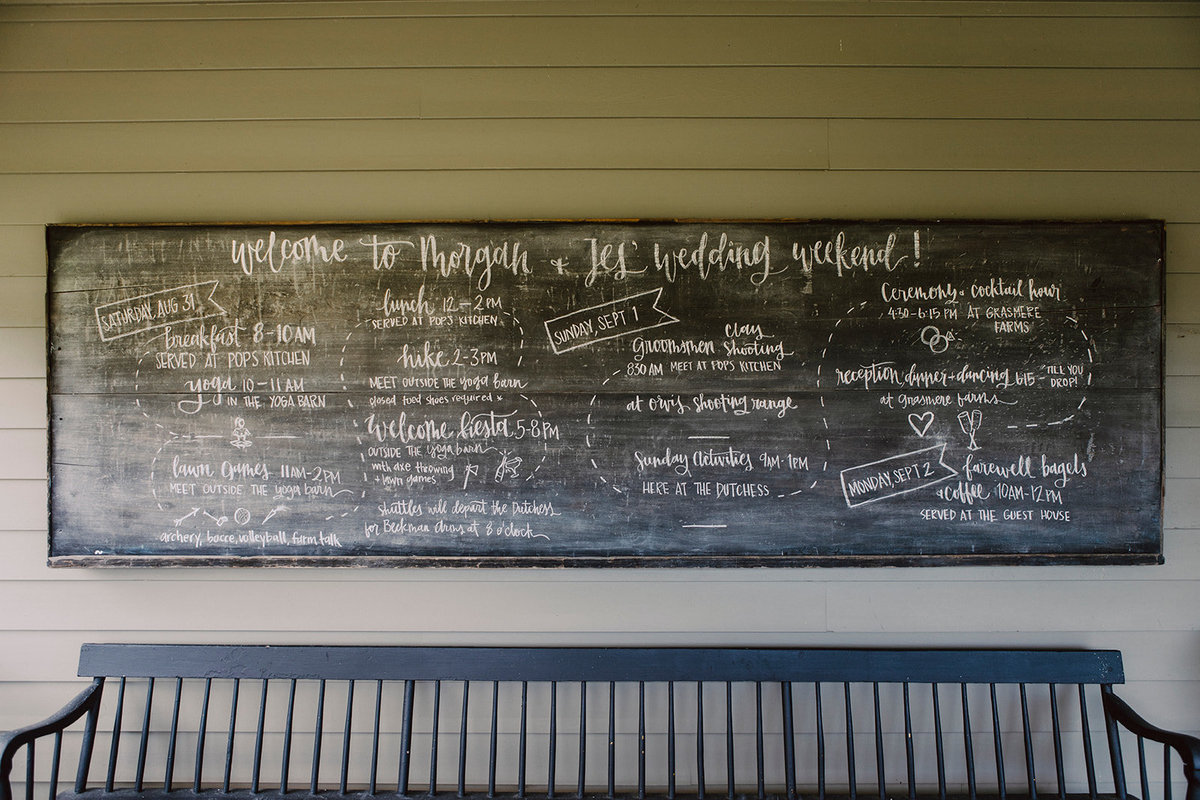 Welcome to Morgan + Jes' wedding weekend!
SATURDAY, AUG 31
breakfast 8-10AM
SERVED AT POPS KITCHEN
yoga 10-11AM
IN THE YOGA BARN
lawn games 11AM-2PM
MEET OUTSIDE THE yoga barn
archery, bocce, volleyball, farm talk
lunch 12-2PM
SERVED AT POP'S KITCHEN
hike 2-3PM
MEET OUTSIDE THE yoga barn
closed toed shoes required *
Welcome fiesta 5-8PM
OUTSIDE THE yoga barn
with axe throwing
+ lawn games
shuttles will depart the Dutchess
for Beekman Arms at 8 o'clock
SUNDAY, SEPT 1
Groomsmen Clay Shooting
830AM MEET AT POPS KITCHEN
at Orvis Shooting range
Sunday Activities 9AM-1PM
HERE AT THE DUTCHESS
Ceremony & cocktail hour
4:30-6:15 PM AT GRASMERE
FARMS
reception dinner + dancing 615 - TILL YOU DROP!
at Grasmere farms
MONDAY, SEPT 2
farewell bagels
& coffee 10AM-12PM
SERVED AT THE GUEST HOUSE